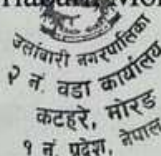 उर्लाबारी नगरपालिका
२ नं. वडा कार्यालय
कटहरे, मोरङ
१ नं. प्रदेश, नेपाल